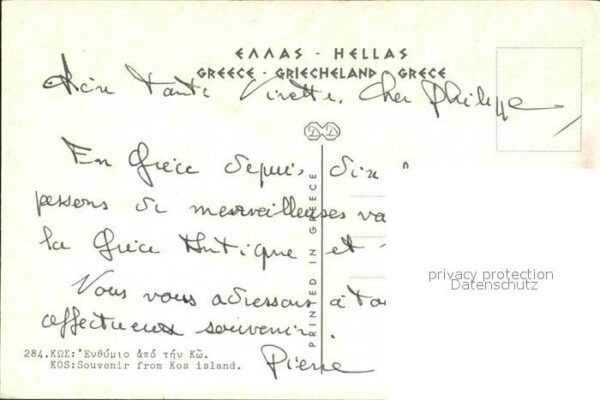 ΕΛΛΑΣ - HELLAS
GREECE - GRIECHELAND - GRECE
Chère Tante Ginette, Cher Philippe,
En Grèce depuis dix
passons de merveilleuses va
la Grèce Antique et
Nous vous adressons à tou
affectueux souvenir.
Pierre
PRINTED IN GREECE
284.ΚΩΣ: Ἐνθύμιο ἀπό τήν Κῶ.
KOS: Souvenir from Kos island.
privacy protection
Datenschutz